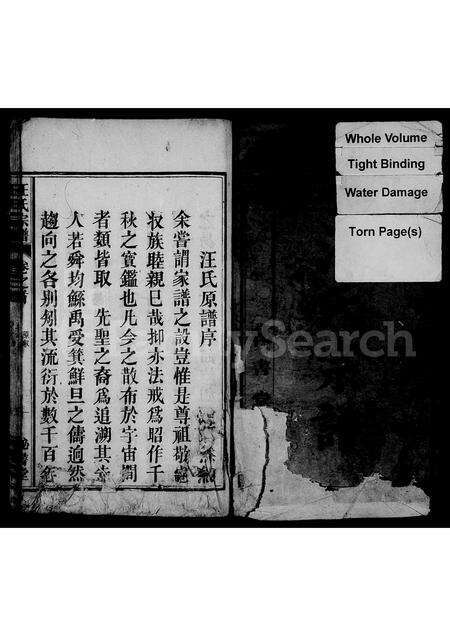 汪氏原譜序
余嘗謂家譜之設豈惟是尊祖敬宗
収族睦親已哉抑亦法戒爲昭作千
秋之寶鑑也凡今之散布於宇宙間
者類皆取 先聖之裔爲追溯其
人若舜均鯀禹受箕鮮旦之儔逈然
趨向之各別矧其流衍於數千百
汪氏宗譜
Whole Volume
Tight Binding
Water Damage
Torn Page(s)
MySearch